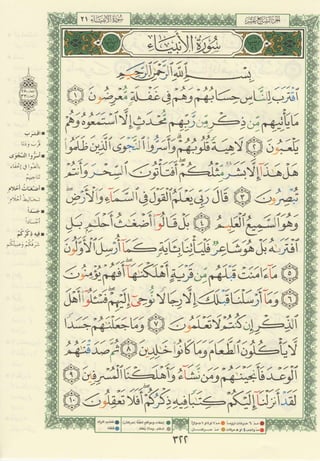 سُورَةُ الأَنْبِيَاءِ ٢١
سُورَةُ الأَنْبِيَاءِ
بِسْمِ اللَّهِ الرَّحْمَٰنِ الرَّحِيمِ
اقْتَرَبَ لِلنَّاسِ حِسَابُهُمْ وَهُمْ فِي غَفْلَةٍ مُعْرِضُونَ ١
مَا يَأْتِيهِم مِّن ذِكْرٍ مِّن رَّبِّهِم مُّحْدَثٍ إِلَّا اسْتَمَعُوهُ وَهُمْ
يَلْعَبُونَ ٢ لَاهِيَةً قُلُوبُهُمْ وَأَسَرُّوا النَّجْوَى الَّذِينَ ظَلَمُوا
هَلْ هَٰذَا إِلَّا بَشَرٌ مِّثْلُكُمْ أَفَتَأْتُونَ السِّحْرَ وَأَنتُمْ
تُبْصِرُونَ ٣ قَالَ رَبِّي يَعْلَمُ الْقَوْلَ فِي السَّمَاءِ وَالْأَرْضِ
وَهُوَ السَّمِيعُ الْعَلِيمُ ٤ بَلْ قَالُوا أَضْغَاثُ أَحْلَامٍ بَلِ
افْتَرَاهُ بَلْ هُوَ شَاعِرٌ فَلْيَأْتِنَا بِآيَةٍ كَمَا أُرْسِلَ الْأَوَّلُونَ
٥ مَا آمَنَتْ قَبْلَهُم مِّن قَرْيَةٍ أَهْلَكْنَاهَا أَفَهُمْ يُؤْمِنُونَ
٦ وَمَا أَرْسَلْنَا قَبْلَكَ إِلَّا رِجَالًا نُّوحِي إِلَيْهِمْ فَسْئَلُوا أَهْلَ
الذِّكْرِ إِن كُنتُمْ لَا تَعْلَمُونَ ٧ وَمَا جَعَلْنَاهُمْ جَسَدًا
لَّا يَأْكُلُونَ الطَّعَامَ وَمَا كَانُوا خَالِدِينَ ٨ ثُمَّ صَدَقْنَاهُمُ
الْوَعْدَ فَأَنجَيْنَاهُمْ وَمَن نَّشَاءُ وَأَهْلَكْنَا الْمُسْرِفِينَ ٩
لَقَدْ أَنزَلْنَا إِلَيْكُمْ كِتَابًا فِيهِ ذِكْرُكُمْ أَفَلَا تَعْقِلُونَ ١٠
اقْتَرَبَ
أَسَرُّوا النَّجْوَى
أَضْغَاثُ أَحْلَامٍ
جَسَدًا
فِيهِ ذِكْرُكُمْ
٣٢٢